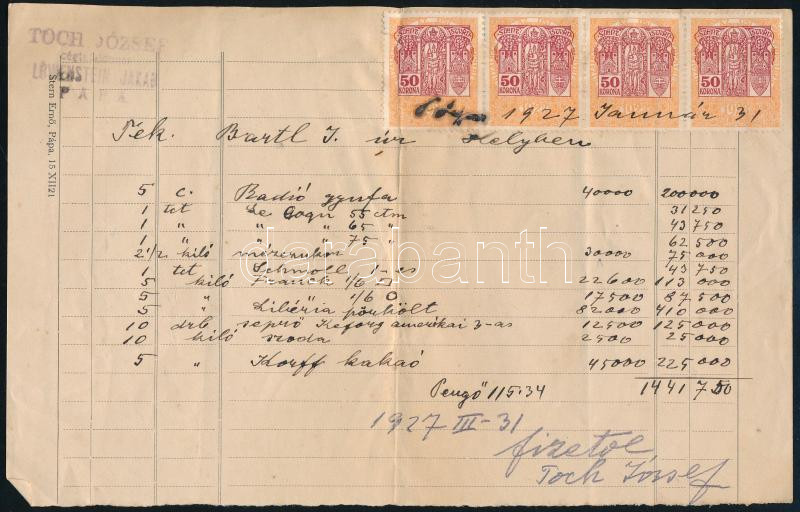 TOCH JÓZSEF
LÖWENSTEIN JAKAB
PÁPA
Stern Ernő, Pápa, 15 XII/21
50 KORONA 50 KORONA 50 KORONA 50 KORONA
Pápa 1927 Január 31
Tek. Bartl J. úr Helyben
5 c. Radió gyufa 40000 200000
1 tct Le Coqu 55 ctm 31250
1 " " " 65 " 43750
1 " " " 75 " 62500
2 1/2 kiló mézcukor 30000 75000
1 tct Schmoll 1-es 43750
5 kiló Franck 1/6 □ 22600 113000
5 " " 1/6 O 17500 87500
5 " Libéria pörkölt 82000 410000
10 drb seprő amérikai 3-as 12500 125000
10 kiló szoda 2500 25000
5 " Korff kakaó 45000 225000
Pengő 115.34 1441750
1927 III-31
fizetve
Toch József
darabanth